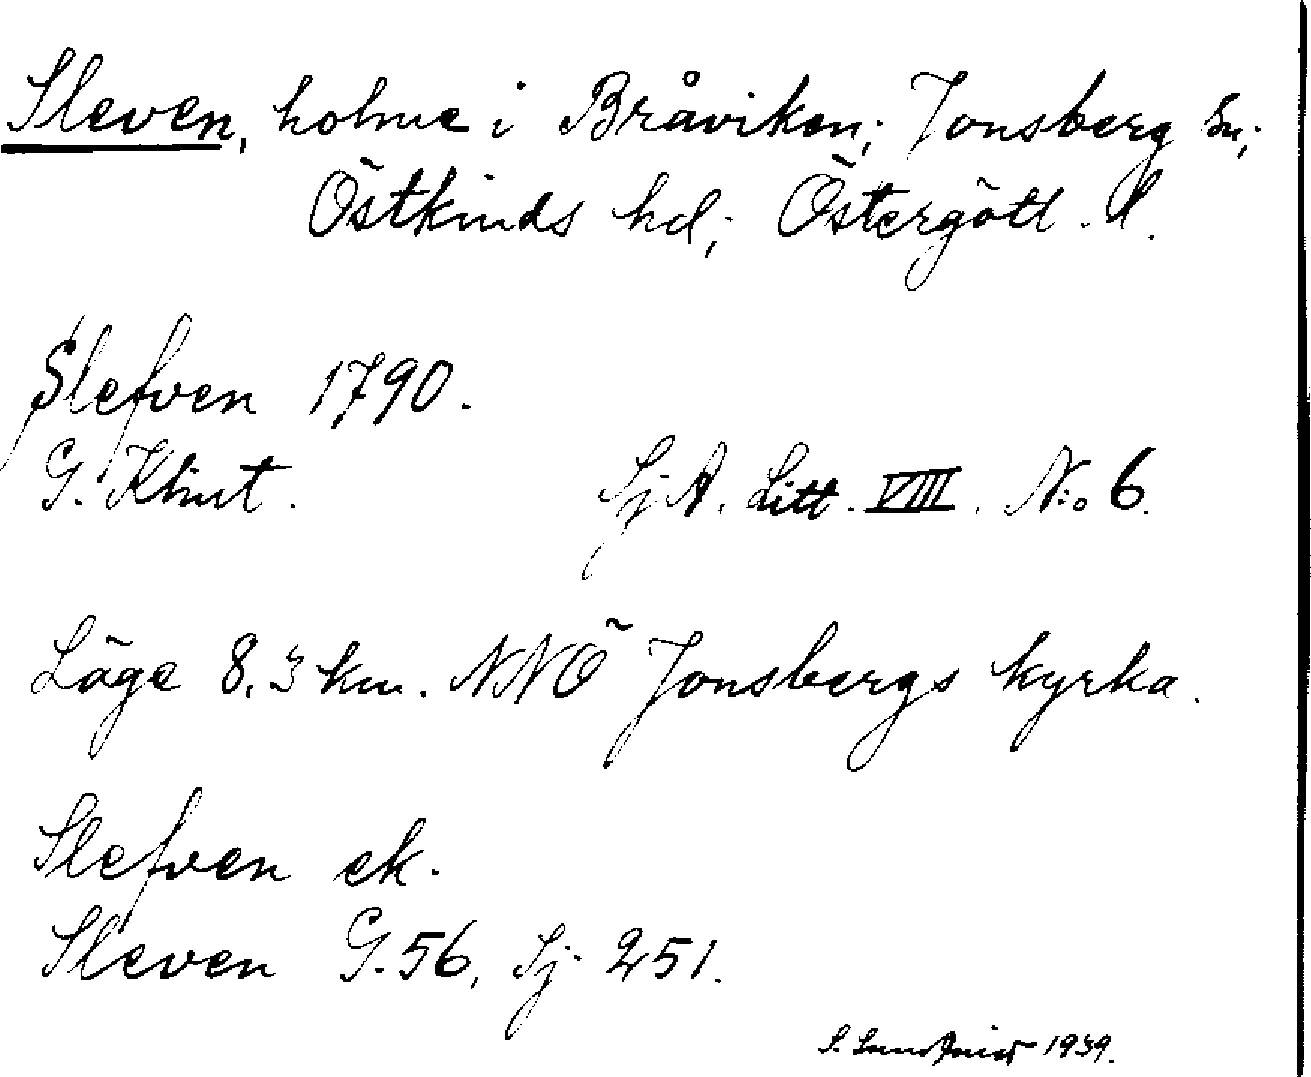 Sleven, holme i Bråviken; Jonsberg sn;
Östkinds hd; Östergötl. l.
Slefven 1790.
G. Klint. Sj A. Litt. VIII. N:o 6.
Läge 8.3 km. NNÖ Jonsbergs kyrka.
Slefven ek.
Sleven G. 56, Sj. 251.
S. 1939.